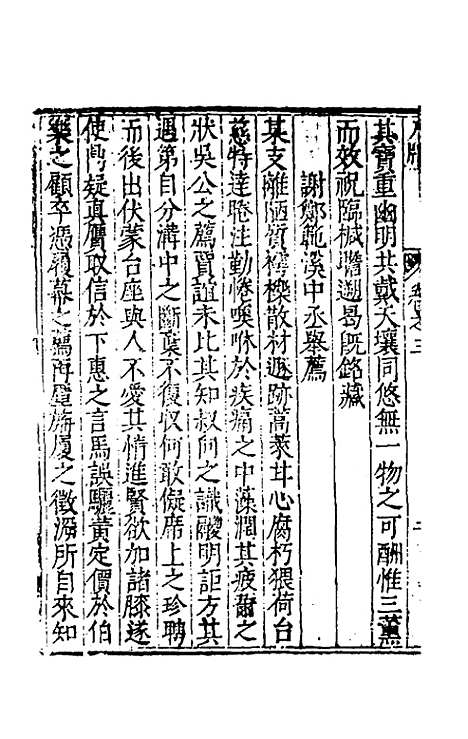 其寶重幽明共戴天壤同悠無一物之可酬惟三薰
而效祝臨椷瞻遡曷旣銘藏
謝鄭範溪中丞舉薦
某支離陋質樗櫟散材遯跡蒿萊甘心腐朽猥荷台
慈特達睠注勤惓噢咻於疾痛之中藻潤其疲薾之
狀吳公之薦賈誼未比其知叔向之識鬷明詎方其
遇第自分溝中之斷棄不復収何敢儗席上之珍聘
而後出伏蒙台座與人不愛其情進賢欲加諸膝遂
使鼎疑真贋取信於下惠之言馬誤驪黃定價於伯
樂之顧卒憑覆幕之再履之徵溯所自來知